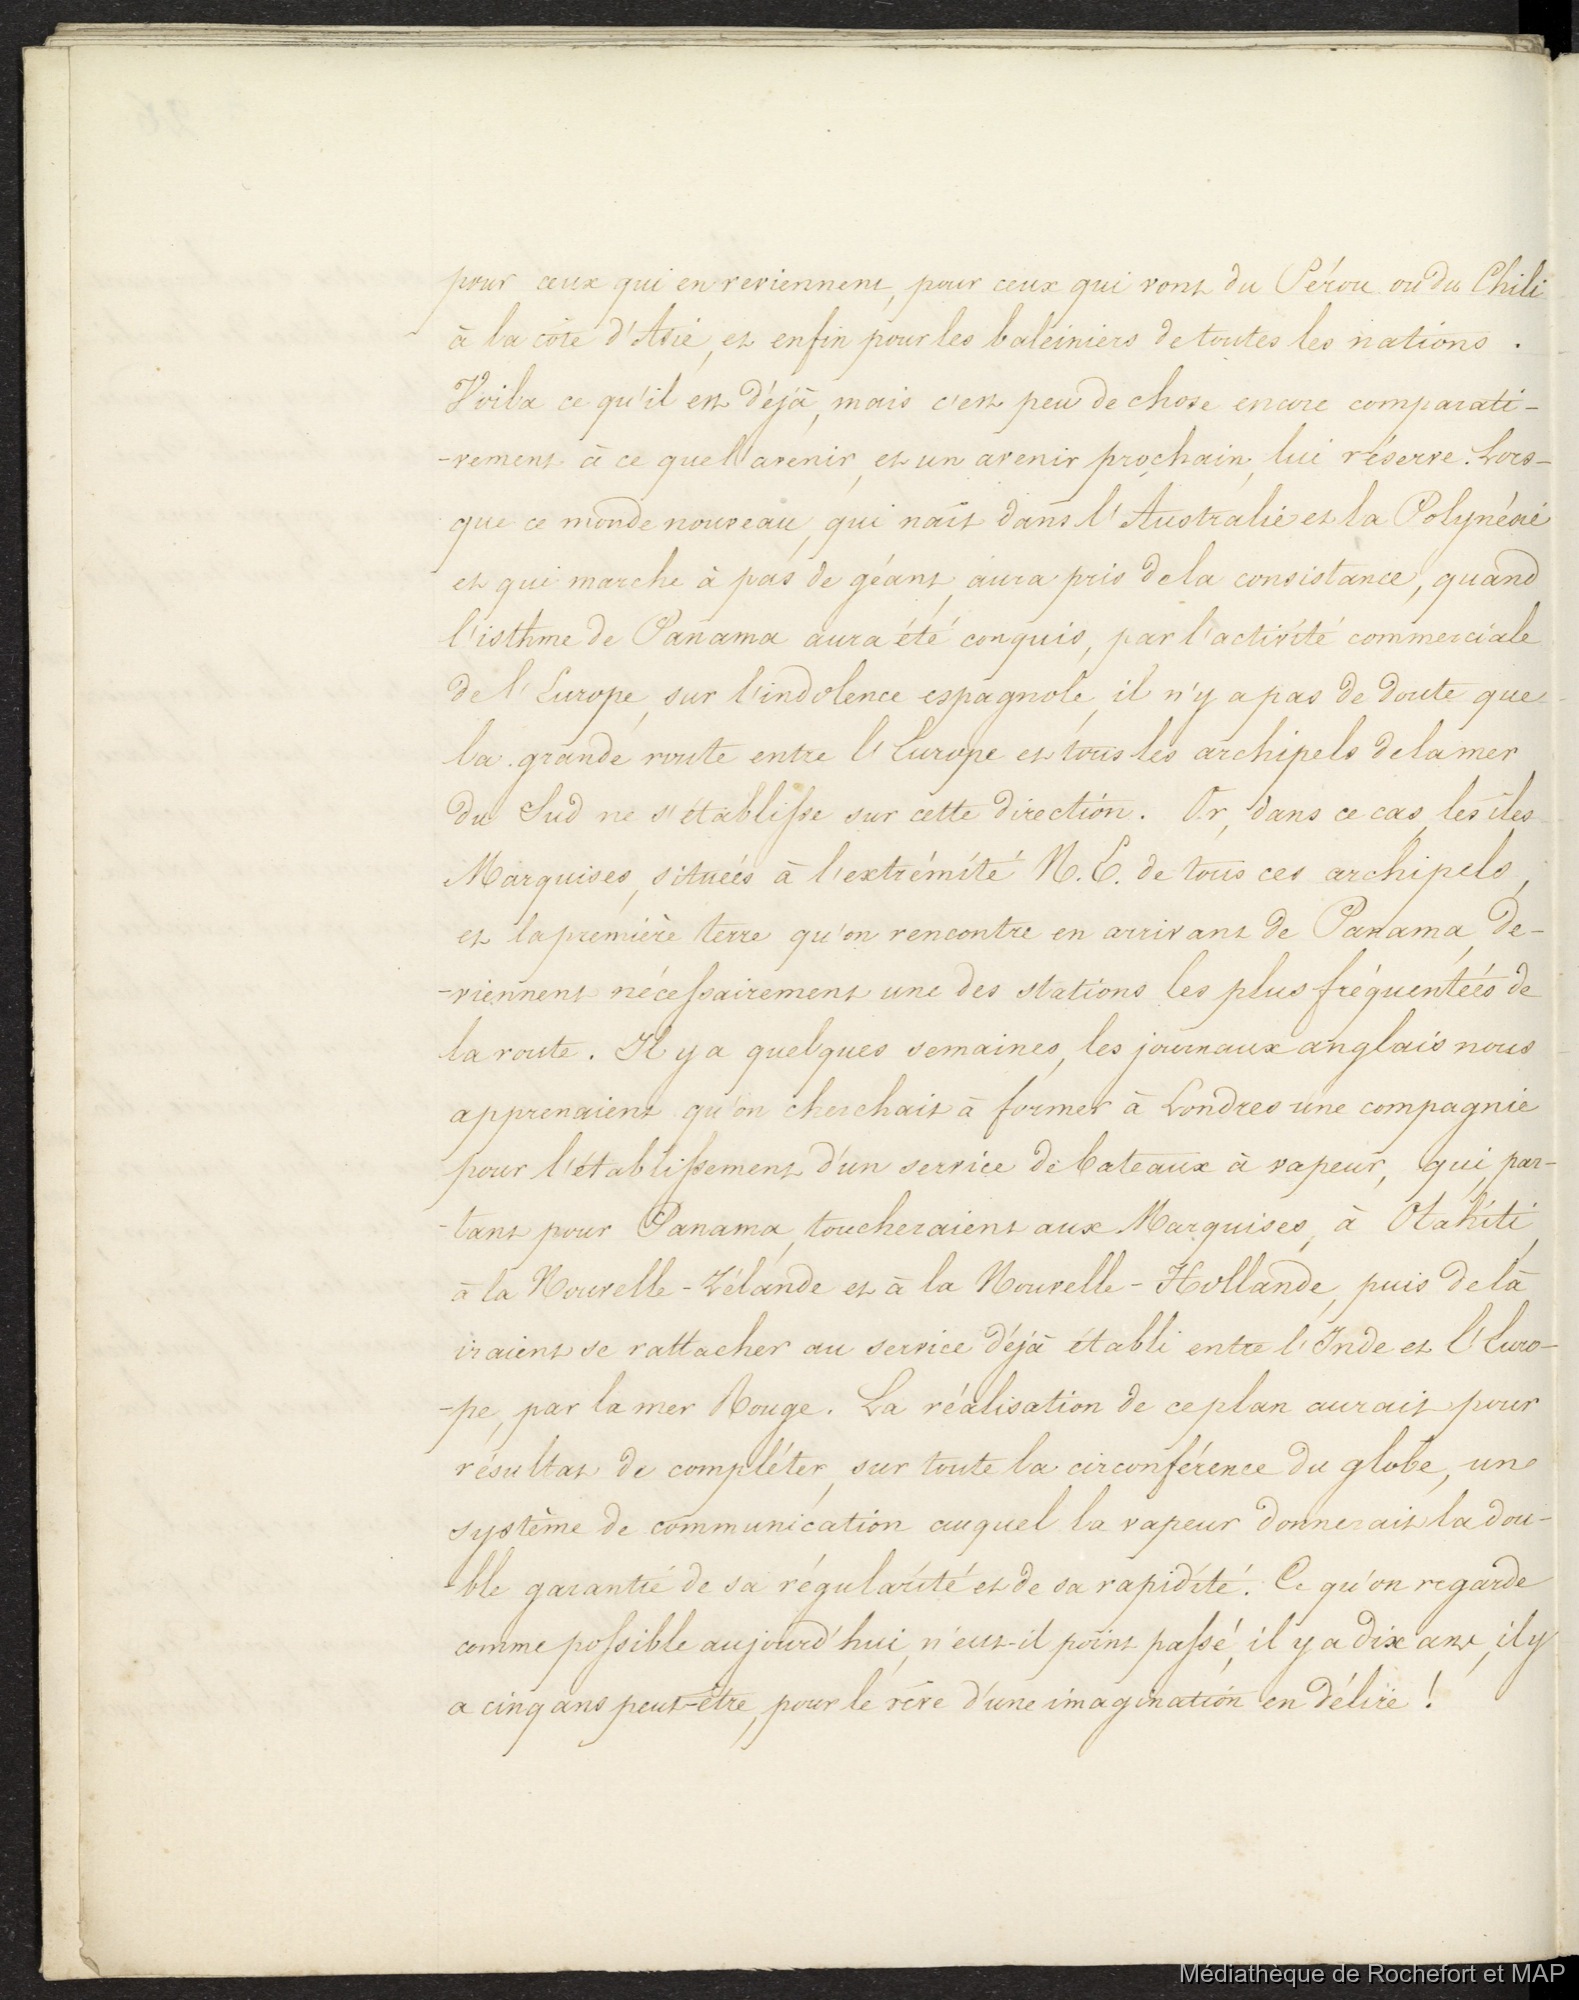 pour ceux qui en reviennent, pour ceux qui vont du Pérou ou du Chili
à la côte d'Asie, et enfin pour les baleiniers de toutes les nations.
Voila ce qu'il est déjà, mais c'est peu de chose encore comparati-
-vement à ce que l'avenir, et un avenir prochain, lui réserve. Lors-
que ce monde nouveau, qui naît dans l'Australie et la Polynésie
et qui marche à pas de géant, aura pris de la consistance, quand
l'isthme de Panama aura été conquis, par l'activité commerciale
de l'Europe, sur l'indolence espagnole, il n'y a pas de doute que
la grande route entre l'Europe et tous les archipels de la mer
du Sud ne s'établisse sur cette direction. Or, dans ce cas, les îles
Marquises, situées à l'extrémité N.E. de tous ces archipels,
et la première terre qu'on rencontre en arrivant de Panama, de-
-viennent nécessairement une des stations les plus fréquentées de
la route. Il y a quelques semaines, les journaux anglais nous
apprenaient qu'on cherchait à former à Londres une compagnie
pour l'établissement d'un service de bateaux à vapeur, qui, par-
-tant pour Panama, toucheraient aux Marquises, à Otahiti,
à la Nouvelle-Zélande et à la Nouvelle-Hollande, puis de là
iraient se rattacher au service déjà établi entre l'Inde et l'Euro-
-pe, par la mer Rouge. La réalisation de ce plan aurait pour
résultat de compléter, sur toute la circonférence du globe, une
système de communication auquel la vapeur donnerait la dou-
-ble garantie de sa régularité et de sa rapidité. Ce qu'on regarde
comme possible aujourd'hui, n'eut-il point passé, il y a dix ans, il y
a cinq ans peut-être, pour le rêve d'une imagination en délire !
Médiathèque de Rochefort et MAP